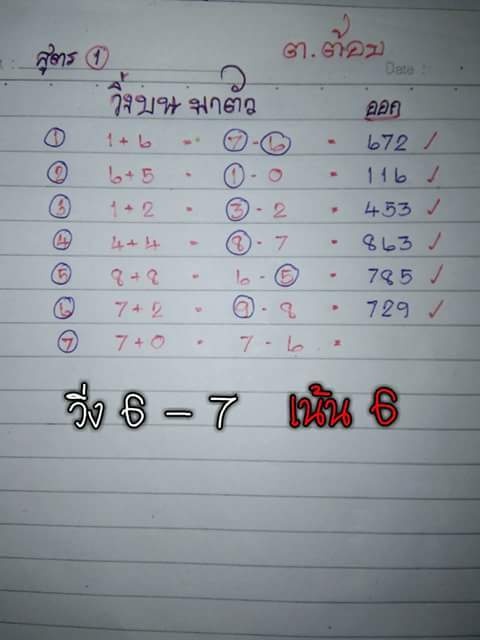 สูตร ① ต.ต้อม Date :
วิ่งบน มาตัว ออก
① 1+6 = ⑦-⑥ = 672 ✓
② 6+5 = ①-0 = 116 ✓
③ 1+2 = ③-2 = 453 ✓
④ 4+4 = ⑧-7 = 863 ✓
⑤ 8+8 = 6-⑤ = 785 ✓
⑥ 7+2 = ⑨-8 = 729 ✓
⑦ 7+0 = 7-6 =
วิ่ง 6 – 7 เน้น 6